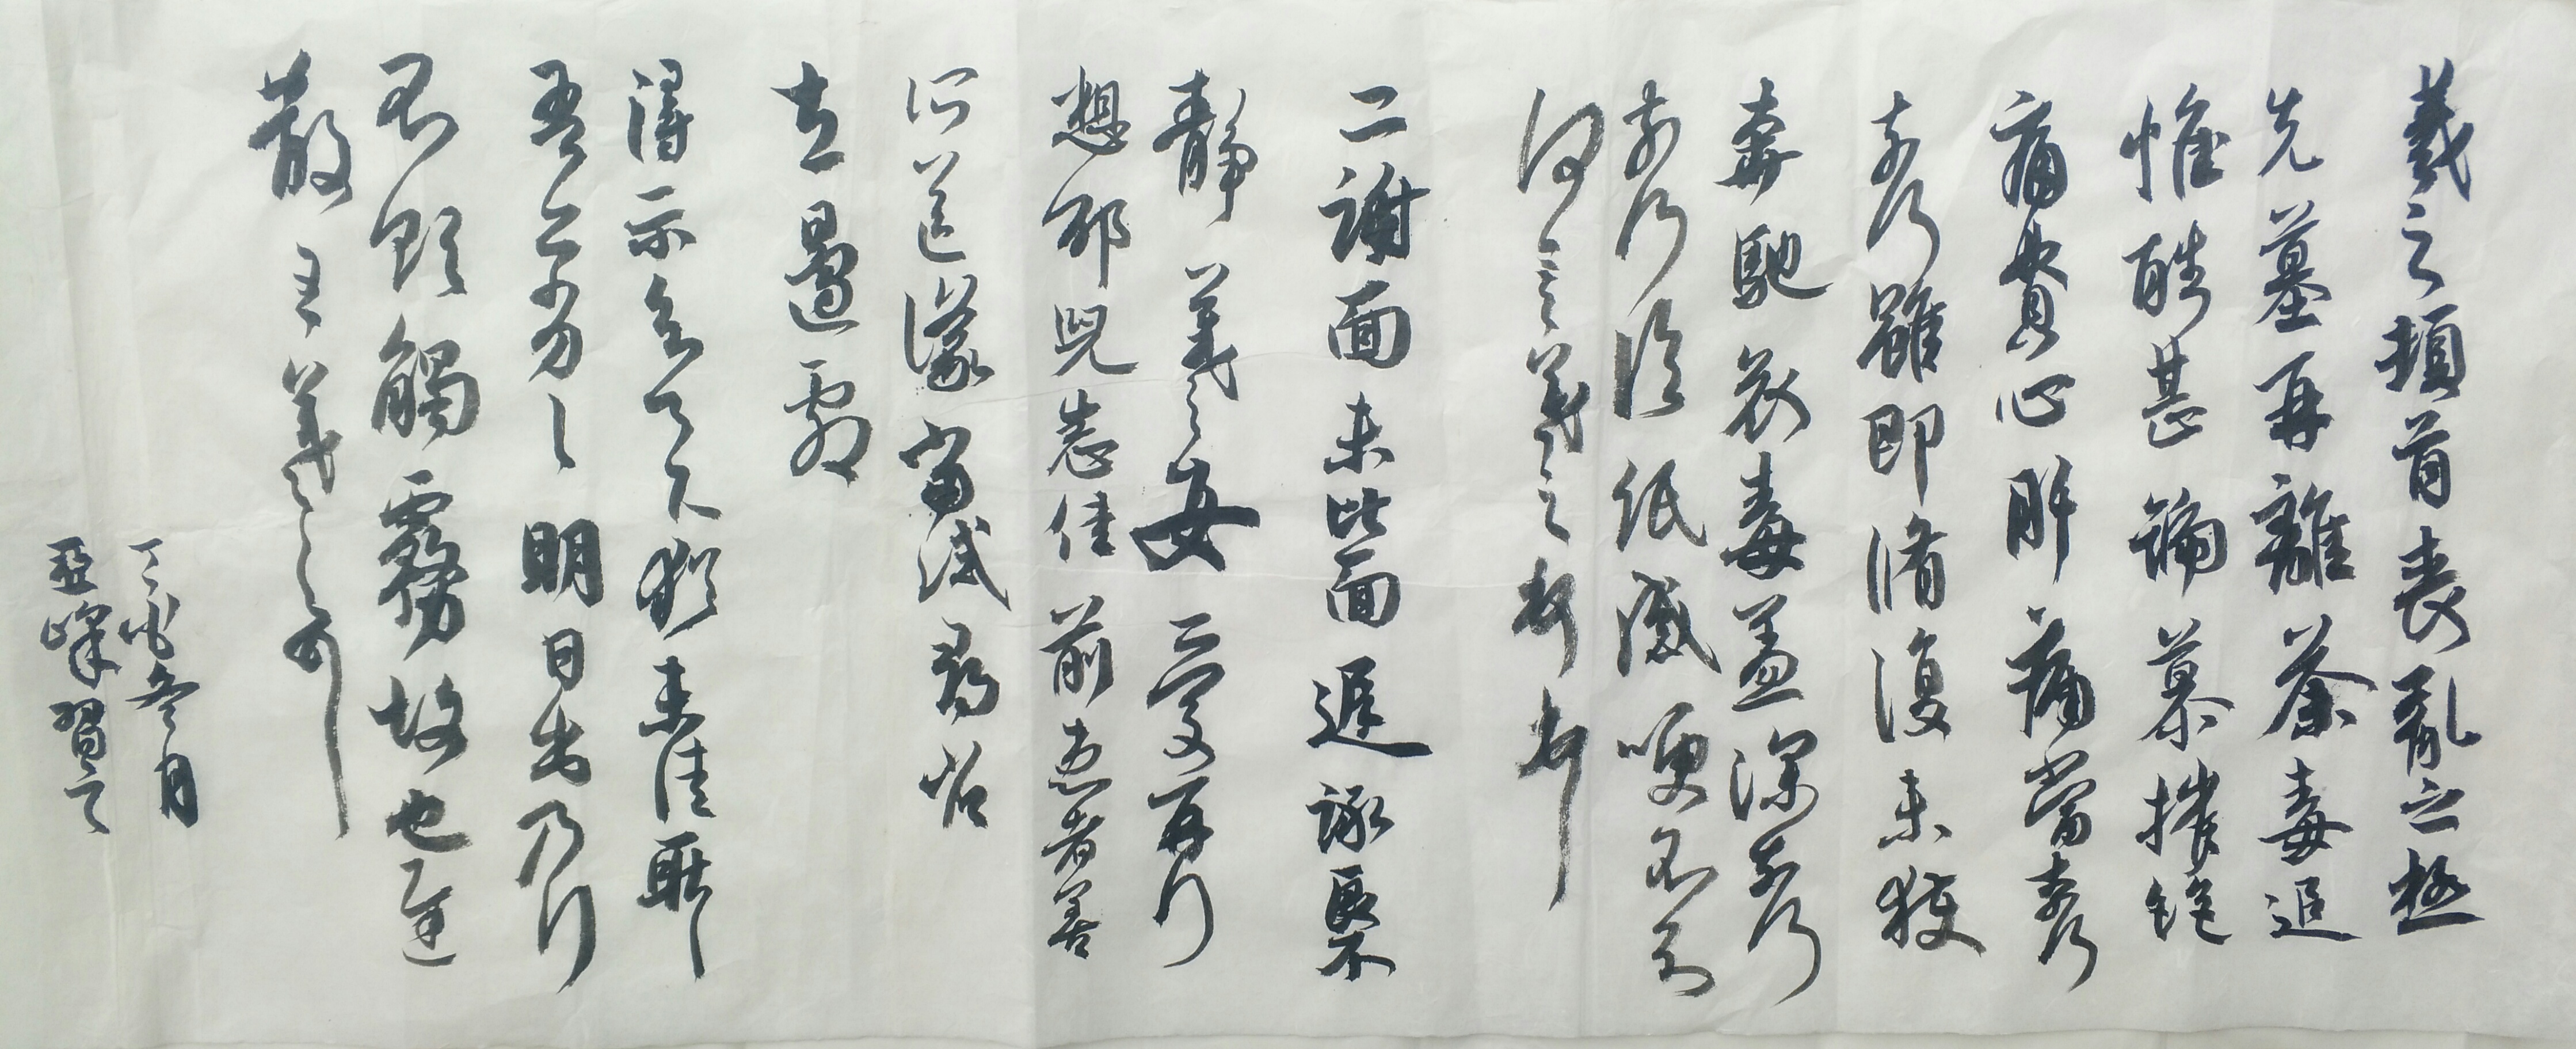 羲之頓首喪亂之極
先墓再離荼毒追
惟酷甚號慕摧絕
痛貫心肝痛當奈何
奈何雖即脩復未獲
奔馳哀毒益深奈何
奈何臨紙感哽不知
何言羲之頓首頓首
二謝面未比面遲詠良不
靜羲之女愛再拜
想邵兒悉佳前患者善
所送議當試尋省
左邊劇
得示知足下猶未佳耿耿
吾亦劣劣明日出乃行
不欲觸霧故也遲
散王羲之頓首
丁酉冬月
亞峰習之